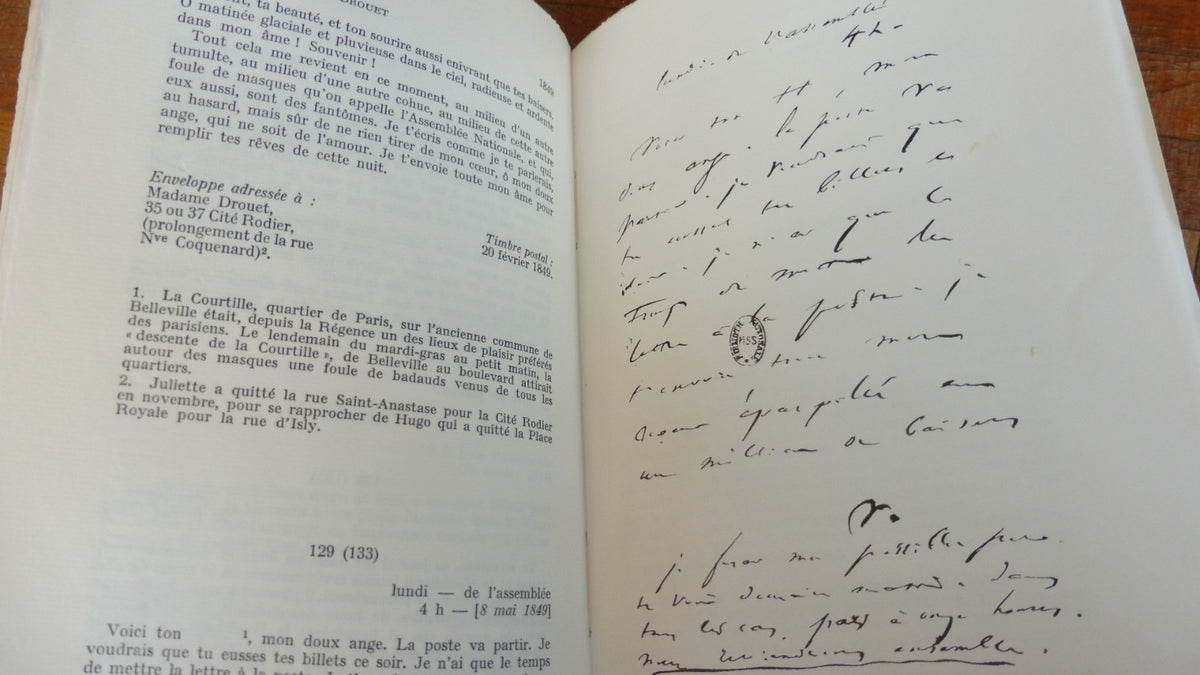 DROUET
1849
, ta beauté, et ton sourire aussi enivrant que tes baisers.
O matinée glaciale et pluvieuse dans le ciel, radieuse et ardente
dans mon âme ! Souvenir !
Tout cela me revient en ce moment, au milieu d'un autre
tumulte, au milieu d'une autre cohue, au milieu de cette autre
foule de masques qu'on appelle l'Assemblée Nationale, et qui,
eux aussi, sont des fantômes. Je t'écris comme je te parlerais,
au hasard, mais sûr de ne rien tirer de mon cœur, ô mon doux
ange, qui ne soit de l'amour. Je t'envoie toute mon âme pour
remplir tes rêves de cette nuit.
Enveloppe adressée à :
Madame Drouet,
35 ou 37 Cité Rodier,
(prolongement de la rue
Nve Coquenard)².
Timbre postal :
20 février 1849.
1. La Courtille, quartier de Paris, sur l'ancienne commune de
Belleville était, depuis la Régence un des lieux de plaisir préférés
des parisiens. Le lendemain du mardi-gras au petit matin, la
« descente de la Courtille », de Belleville au boulevard attirait
autour des masques une foule de badauds venus de tous les
quartiers.
2. Juliette a quitté la rue Saint-Anastase pour la Cité Rodier
en novembre, pour se rapprocher de Hugo qui a quitté la Place
Royale pour la rue d'Isly.
129 (133)
lundi — de l'assemblée
4 h — [8 mai 1849]
Voici ton ¹, mon doux ange. La poste va partir. Je
voudrais que tu eusses tes billets ce soir. Je n'ai que le temps
de mettre la lettre à la poste. Je
lundi - de l'assemblée
4 h -
Voici ton mon
doux ange. la poste va
partir. je voudrais que
tu eusses tes billets ce
soir. je n'ai que le
temps de mettre la
lettre à la poste - je
t'envoie mon
cœur éparpillé en
un million de baisers
V.
je ferai mon possible pour
te voir demain mardi. Dans
tous les cas, jeudi à onze heures,
nous ensemble.